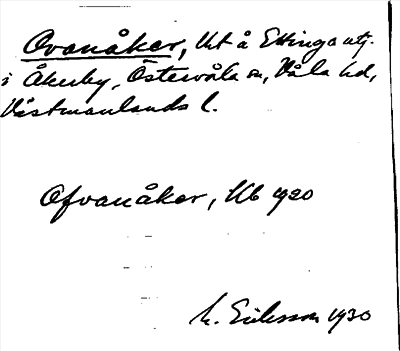 Ovanåker, Ht å Ettinga utj.
i Åkerby, Östervåla sn, Våla hd,
Västmanlands l.
Ofvanåker, Ub 1920
M. Eriksson 1930